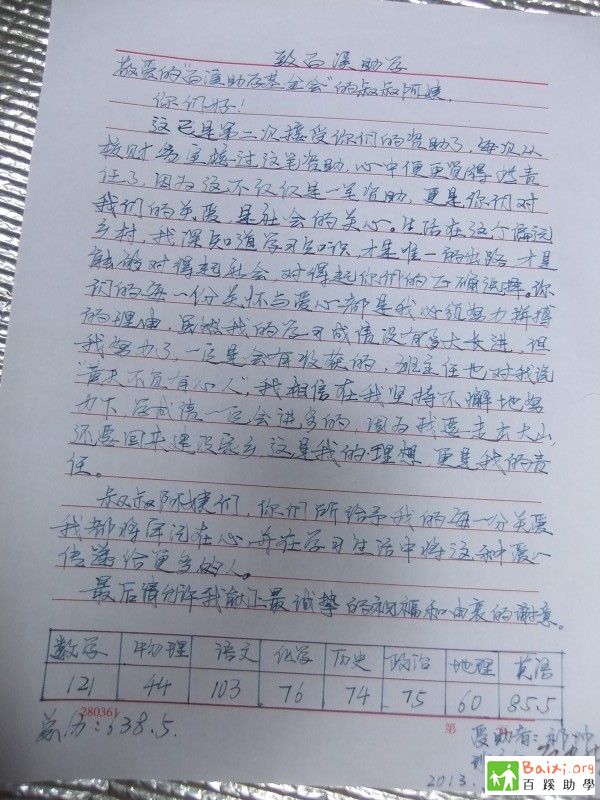 致百溪助学
敬爱的"百溪助学基金会"的叔叔阿姨,
你们好!
这已是第二次接受你们的资助了,每次从
校财务室接过这笔资助,心中便更觉得些责
任了,因为这不仅仅是一笔资助,更是你们对
我们的关爱,是社会的关心。生活在这个偏远
乡村,我深知道学习知识,才是唯一的出路,才是
能够对得起社会,对得起你们的正确选择。你
们的每一份关怀与爱心都是我必须努力拼搏
的理由,虽然我的学习成绩没有多大长进,但
我努力了,一定是会有收获的,班主任也对我说
"黄天不负有心人",我相信在我坚持不懈地努
力下,成绩一定会进步的,因为我要走出大山,
还要回来建设家乡,这是我的理想,更是我的责
任。
叔叔阿姨们,你们所给予我的每一份关爱
我都将牢记在心,并在学习生活中将这种爱心
传递给更多的人。
最后请允许我献上最诚挚的祝福和由衷的谢意。
数学 物理 语文 化学 历史 政治 地理 英语
121 44 103 76 74 75 60 85.5
280361 第
总分:638.5.
受助者:
2013.
Baixi.org
百蹊助學